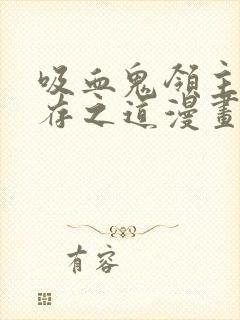 吸血鬼領主
存之道漫畫
有容